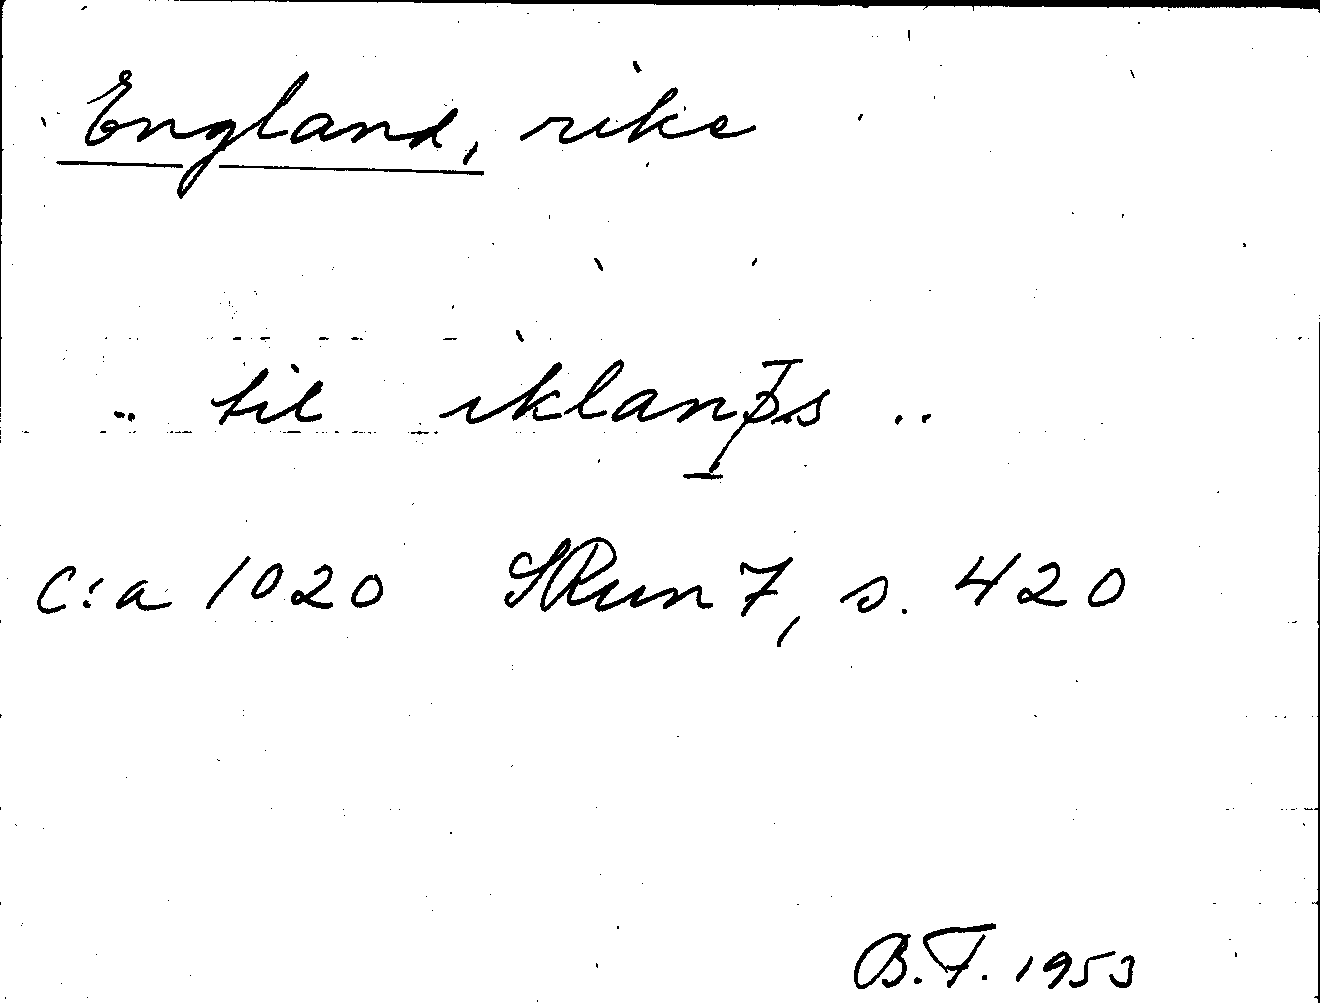 England, rike
.. til iklanþs ..
c:a 1020 SRun 7, s. 420
B.F. 1953